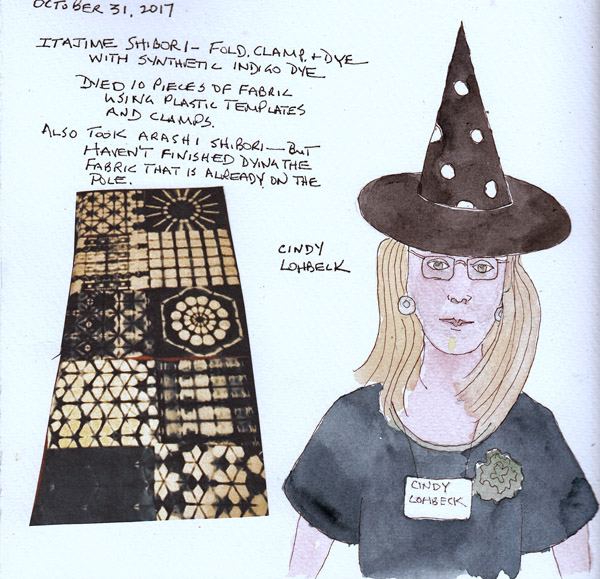 OCTOBER 31, 2017
ITAJIME SHIBORI - FOLD, CLAMP, + DYE
WITH SYNTHETIC INDIGO DYE
DYED 10 PIECES OF FABRIC
USING PLASTIC TEMPLATES
AND CLAMPS.
ALSO TOOK ARASHI SHIBORI - BUT
HAVEN'T FINISHED DYING THE
FABRIC THAT IS ALREADY ON THE
POLE.
CINDY
LOHBECK
CINDY
LOHBECK